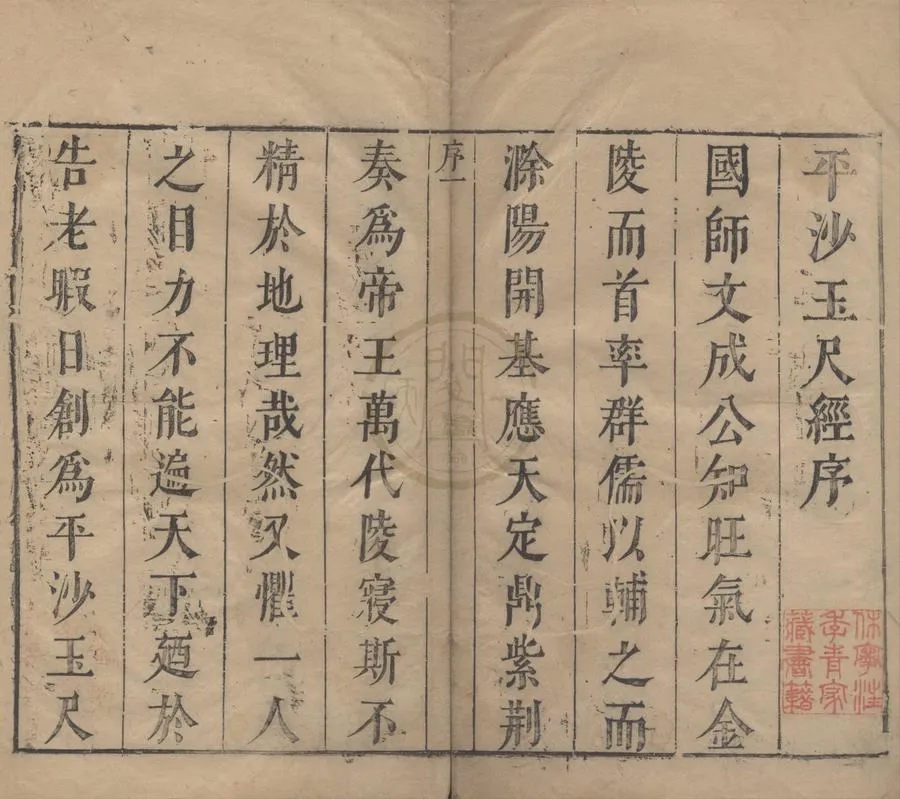 平沙玉尺經序
國師文成公知旺氣在金
陵而首率群儒以輔之而
滁陽開基應天定鼎紫荆
序一
奏爲帝王萬代陵寢斯不
精於地理哉然又懼一人
之目力不能遍天下廼於
告老暇日創爲平沙玉尺
藏書籍